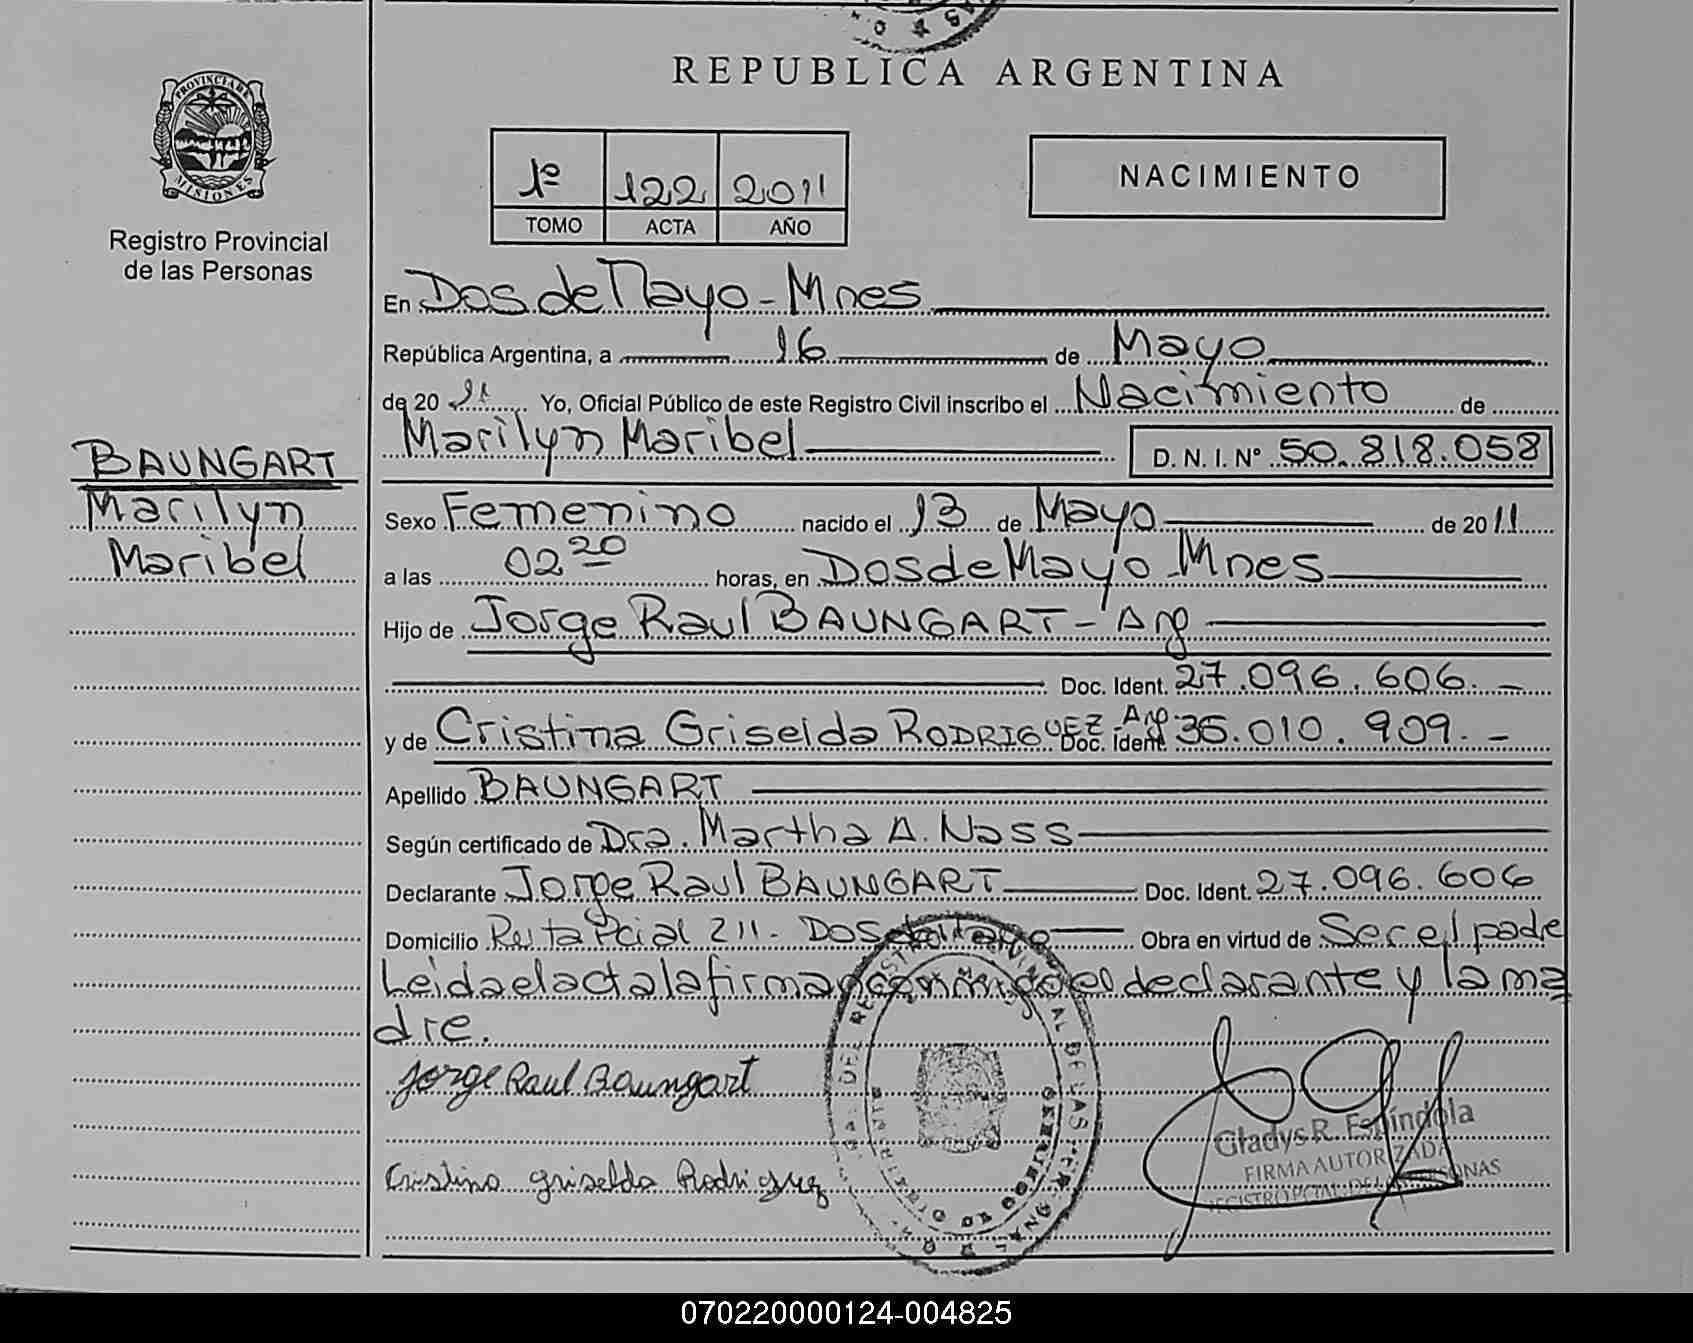 REPUBLICA ARGENTINA
PROVINCIA DE
MISIONES
Registro Provincial
de las Personas
1º 122 2011
TOMO ACTA AÑO
NACIMIENTO
En Dos de Mayo - Mnes
República Argentina, a 16 de Mayo
de 20 11 Yo, Oficial Público de este Registro Civil inscribo el Nacimiento de
Marilyn Maribel D. N. I. Nº 50.818.058
BAUNGART
Marilyn
Maribel
Sexo Femenino nacido el 13 de Mayo de 2011
a las 02 20 horas, en Dos de Mayo Mnes
Hijo de Jorge Raul BAUNGART - Arg
Doc. Ident. 27.096.606. -
y de Cristina Griselda RODRIGUEZ - Arg. Doc. Ident 35.010.909. -
Apellido BAUNGART
Según certificado de Dra. Martha A. Nass
Declarante Jorge Raul BAUNGART Doc. Ident. 27.096.606
Domicilio Pcial 211. Dos de Mayo Obra en virtud de Ser el padre
Leida el acta la firman conmigo el declarante y la ma
dre.
Jorge Raul Baungart
Cristina Griselda Rodriguez
Gladys R. Espíndola
FIRMA AUTORIZADA
REGISTRO PCIAL. DE LAS PERSONAS
070220000124-004825